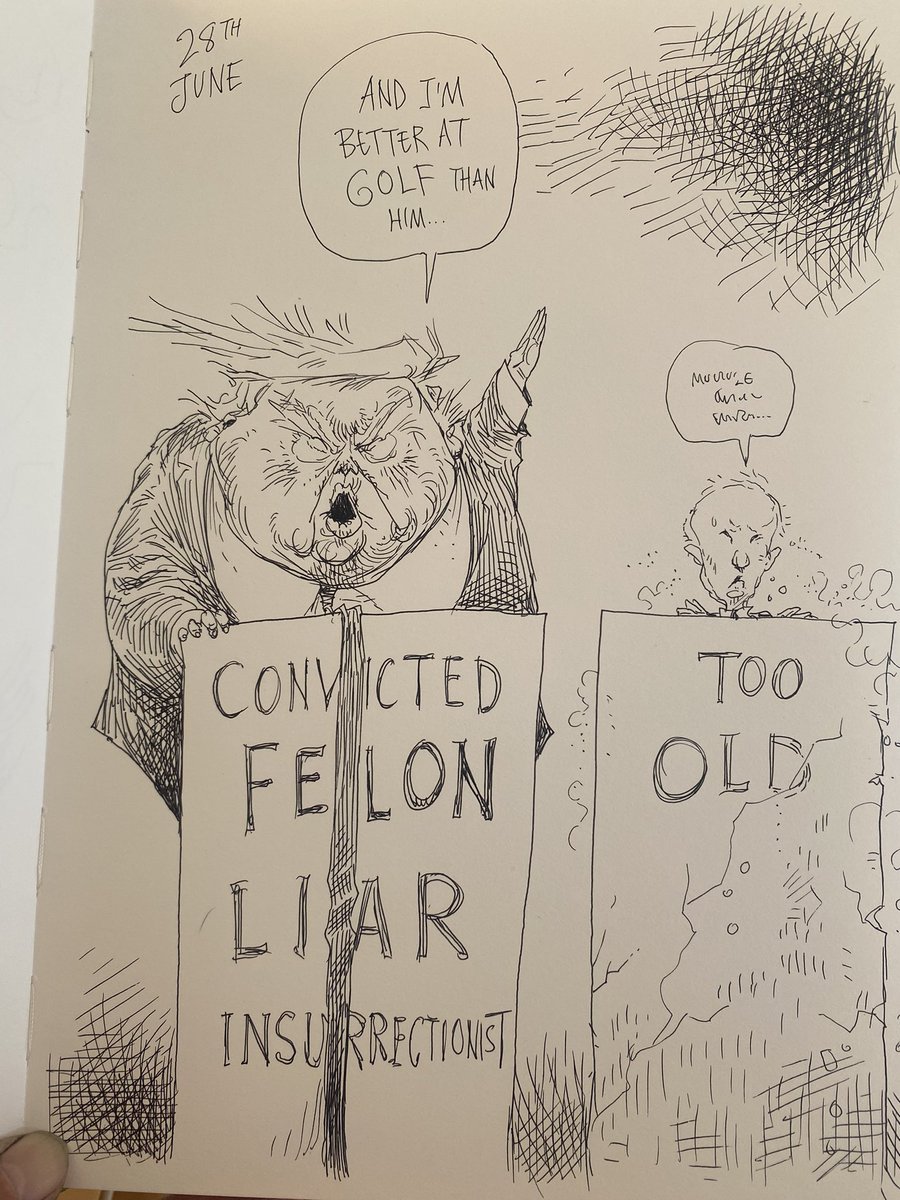 28TH
JUNE
AND I'M
BETTER AT
GOLF THAN
HIM...
CONVICTED
FELON
LIAR
INSURRECTIONIST
TOO
OLD